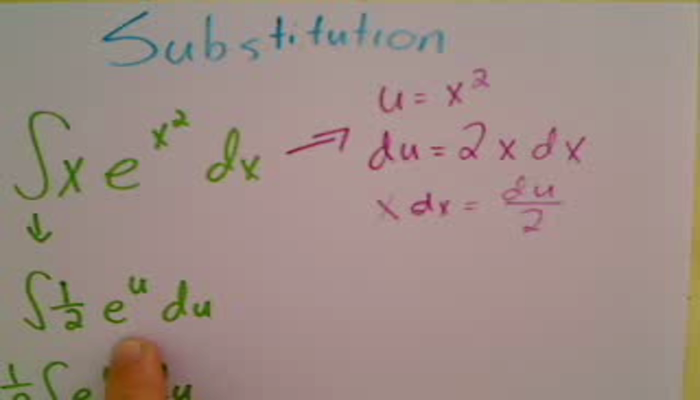 Substitution
∫x e^{x²} dx → u = x²
du = 2x dx
x dx = du/2
↓
∫ 1/2 e^u du